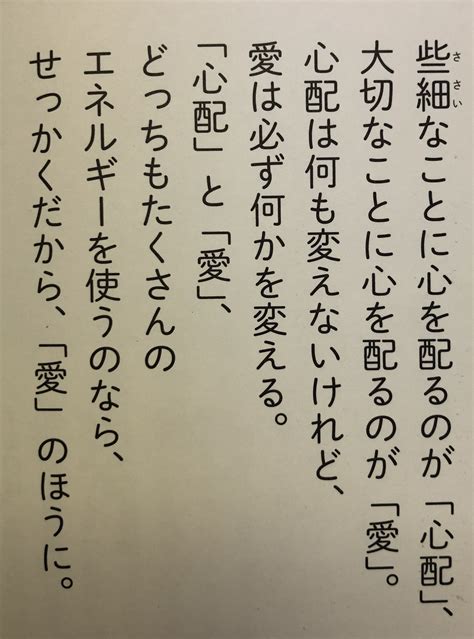 些細なことに心を配るのが「心配」、
大切なことに心を配るのが「愛」。
心配は何も変えないけれど、
愛は必ず何かを変える。
「心配」と「愛」、
どっちもたくさんの
エネルギーを使うのなら、
せっかくだから、「愛」のほうに。